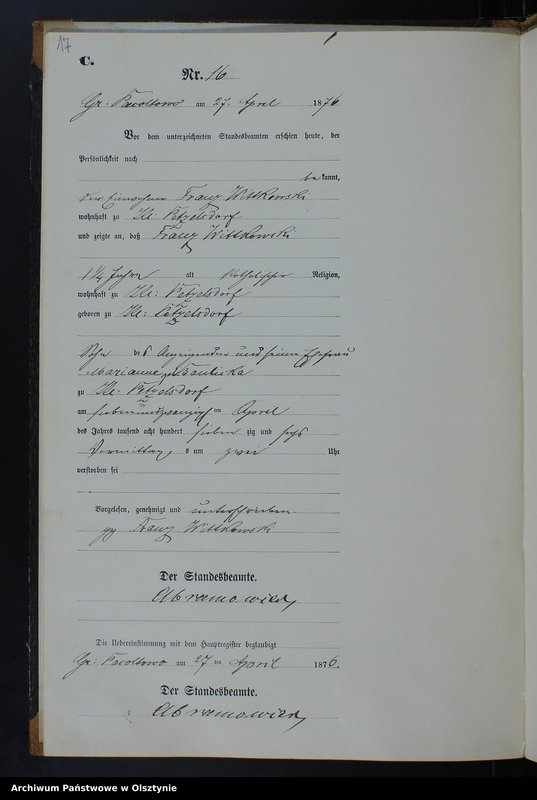 17
C.
Nr. 16
Gr: Pacoltowo am 27. April 1876
Vor dem unterzeichneten Standesbeamten erschien heute, der
Persönlichkeit nach
bekannt,
der Einwohner Franz Wittkowski
wohnhaft zu Kl: Petzelsdorf
und zeigte an, daß Franz Wittkowski
1 1/4 Jahre alt katholischer Religion,
wohnhaft zu Kl: Petzelsdorf
geboren zu Kl: Petzelsdorf
Sohn des und seiner Ehefrau
Marianne
zu Kl: Petzelsdorf
am siebenundzwanzigsten April
des Jahres tausend acht hundert siebenzig und sechs
Vormittags um zwei Uhr
verstorben sei
Vorgelesen, genehmigt und unterschrieben.
gz Franz Wittkowski
Der Standesbeamte.
Abramowicz
Die Uebereinstimmung mit dem Hauptregister beglaubigt
Gr: Pacoltowo am 27 ten April 1876.
Der Standesbeamte.
Abramowicz
Archiwum Państwowe w Olsztynie